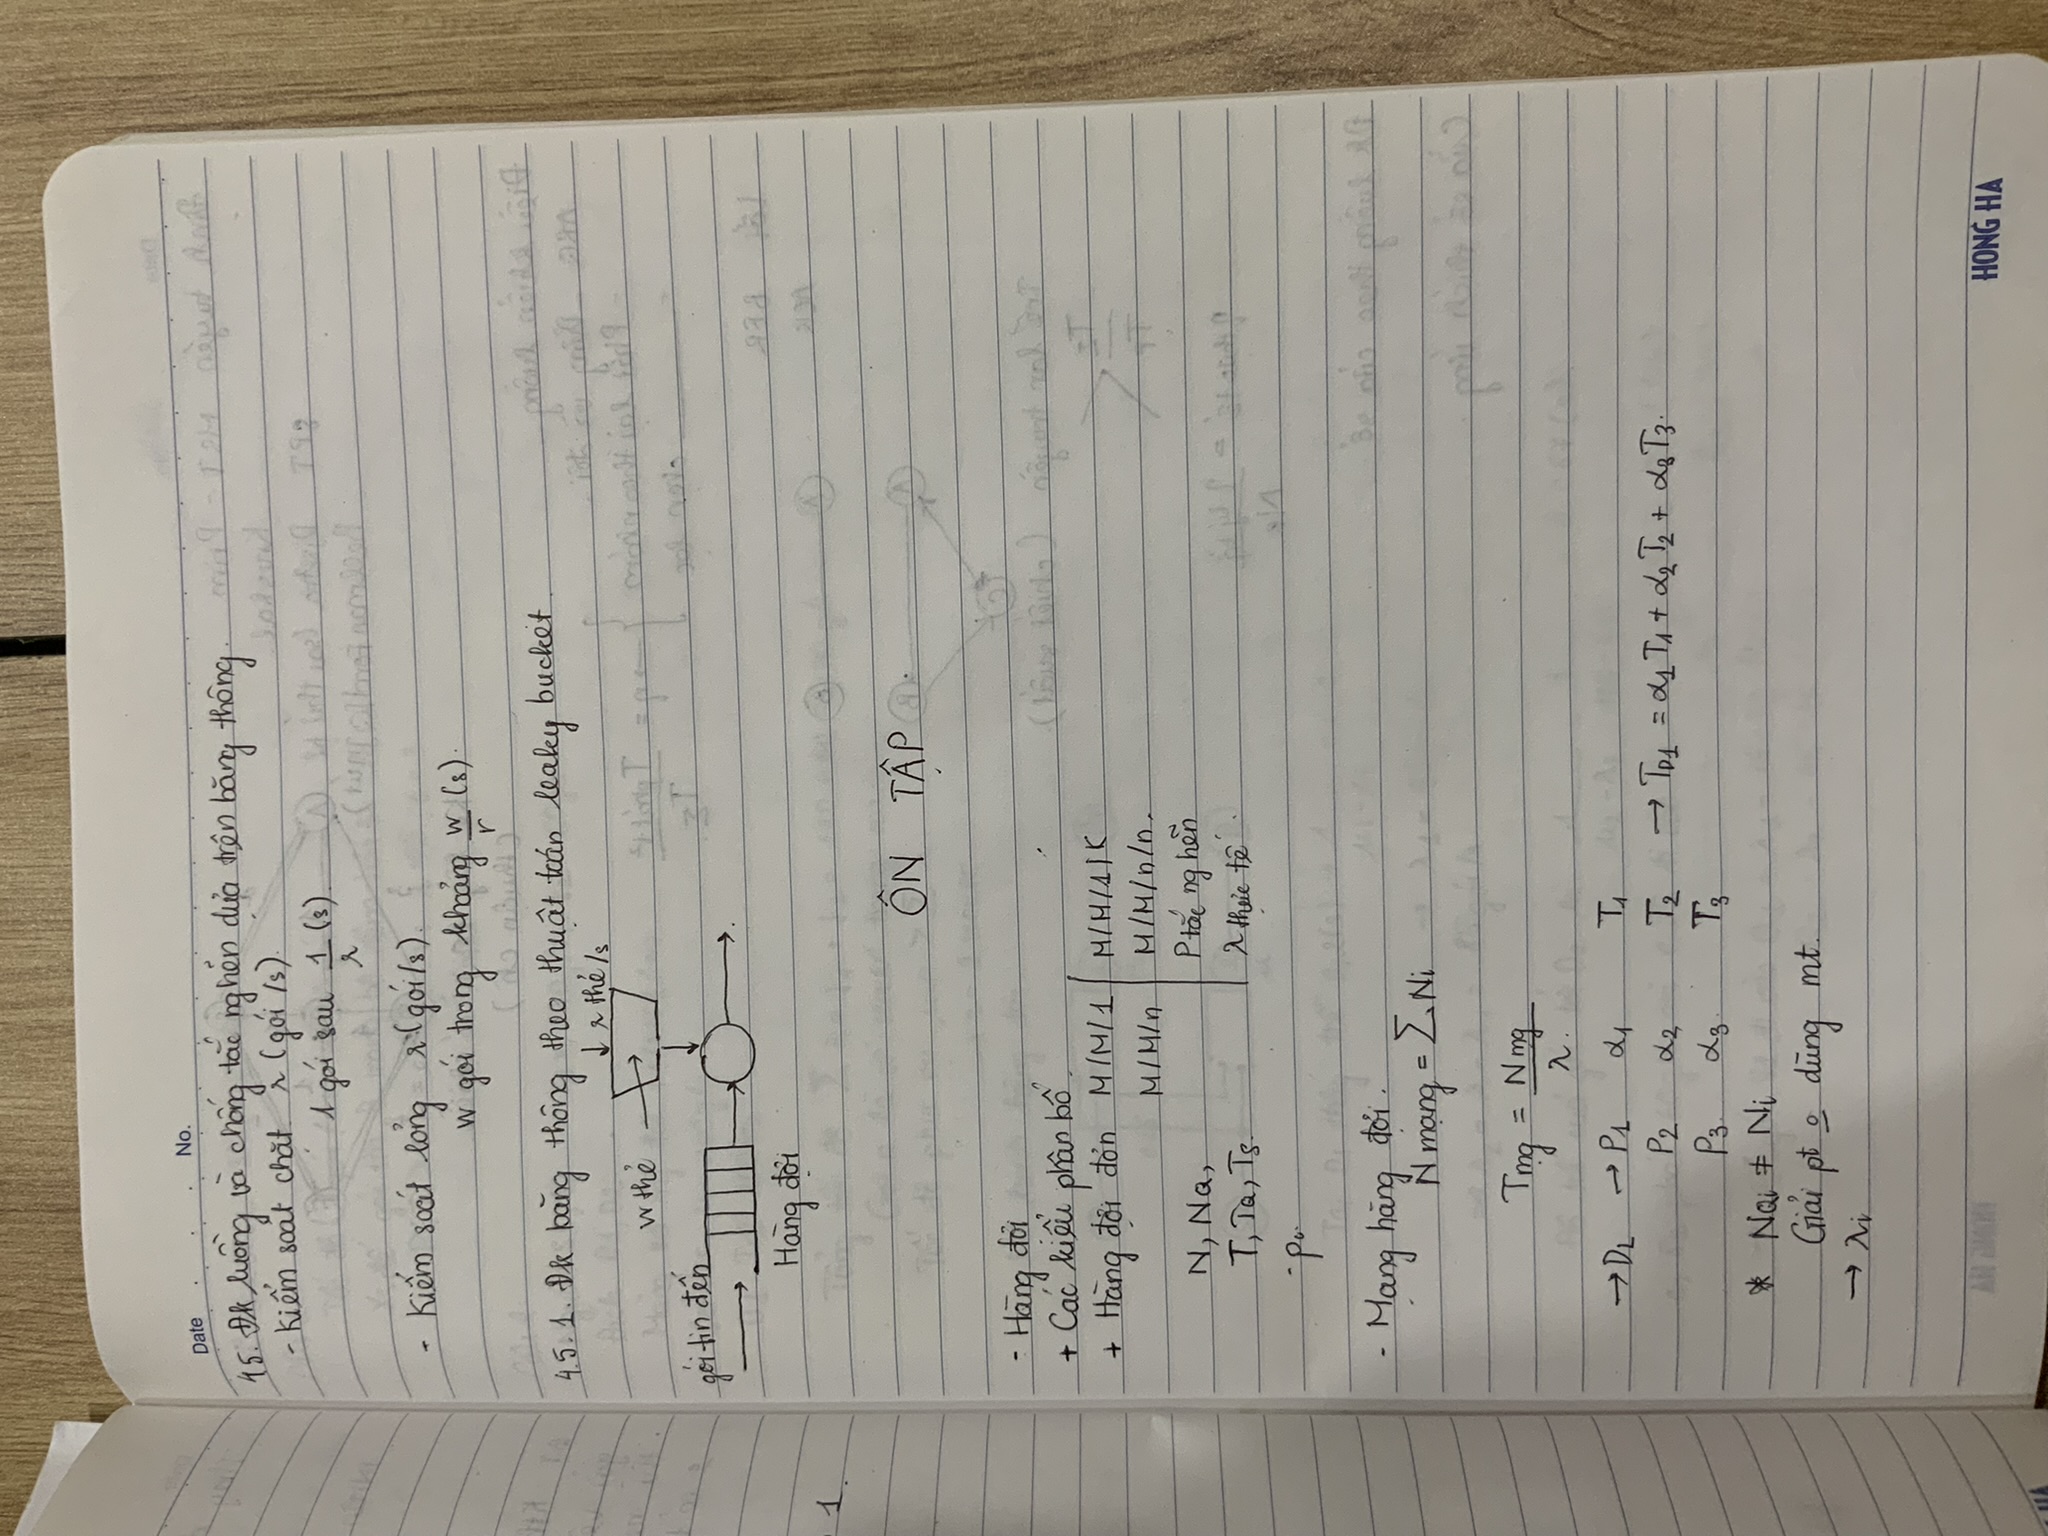 Date No.
4.5. Đk luồng và chống tắc nghẽn dựa trên băng thông.
- Kiểm soát chặt r (gói/s).
1 gói sau 1/r (s).
- Kiểm soát lỏng r (gói/s).
W gói trong khoảng W/r (s).
4.5.1. Đk băng thông theo thuật toán leaky bucket.
↓ r thẻ/s
W thẻ
gói tin đến
Hàng đợi
ÔN TẬP
- Hàng đợi
+ Các kiểu phân bố.
+ Hàng đợi đơn M/M/1 | M/M/1/K
M/M/n | M/M/n/n.
N, NQ, | P tắc nghẽn
T, TQ, TS. | λ thực tế.
- Mạng hàng đợi.
N mạng = ∑ Ni
Tmg = Nmg/λ.
→ D1 → P1 α1 T1
P2 α2 T2 → TD1 = α1T1 + α2T2 + α3T3.
P3. α3. T3
* NQi ≠ Ni
Giải pt o dùng mt.
→ λi
HONG HA